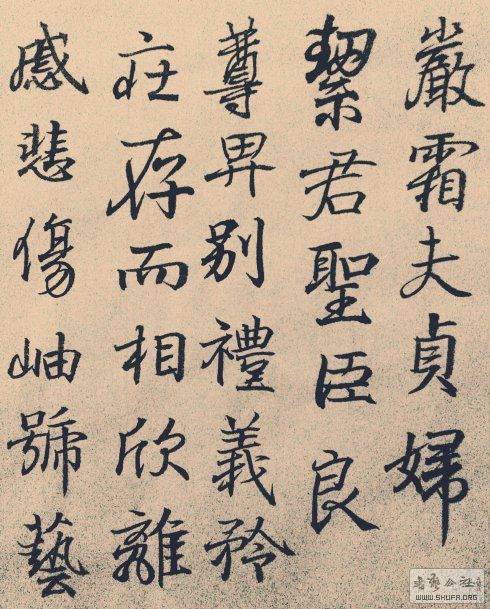 嚴霜夫貞婦
絜君聖臣良
尊卑别禮義矜
庄存而相欣離
慼悲傷岫號藝
公社
WWW.SHUFA.ORG